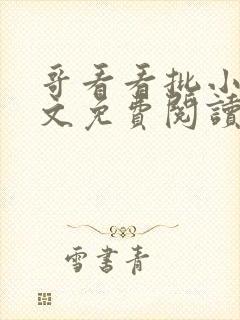 哥看看批小
文免費閱讀
雪書青